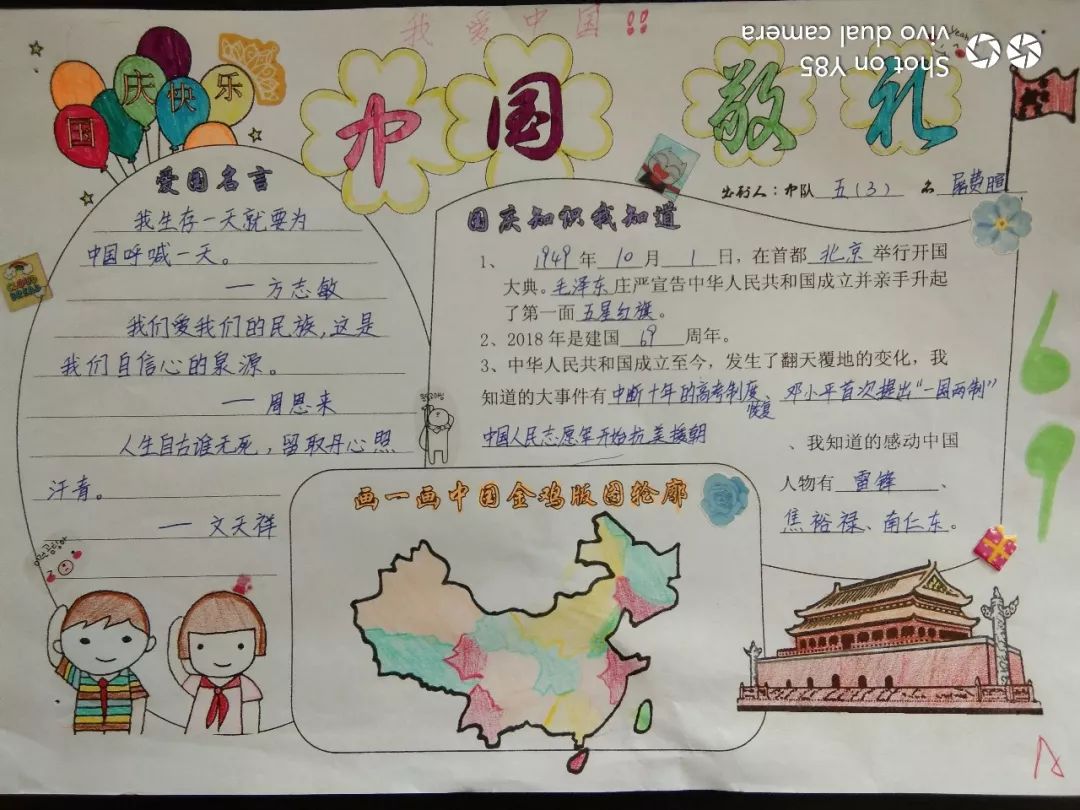 我爱中国!!
Shot on Y85
vivo dual camera
国庆快乐
中国 敬礼
出刊人：中队 五(3) 名 屠费暄
爱国名言
我生存一天就要为
中国呼喊一天。
— 方志敏
我们爱我们的民族,这是
我们自信心的泉源。
— 周恩来
人生自古谁无死，留取丹心照
汗青。
— 文天祥
国庆知识我知道
1、 1949 年 10 月 1 日，在首都 北京 举行开国
大典。毛泽东 庄严宣告中华人民共和国成立并亲手升起
了第一面 五星红旗 。
2、2018 年是建国 69 周年。
3、中华人民共和国成立至今，发生了翻天覆地的变化，我
知道的大事件有 中断十年的高考制度恢复、邓小平首次提出“一国两制”
中国人民志愿军开始抗美援朝 、我知道的感动中国
人物有 雷锋 、
焦裕禄、南仁东。
画一画中国金鸡版图轮廓
69
A